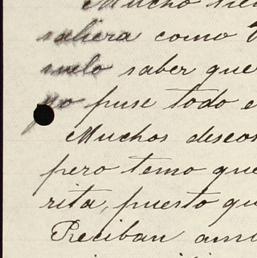 Mucho
saliera como
melo saber que
yo puse todo e
Muchos deseos
pero temo que
rita, puesto qu
Reciban